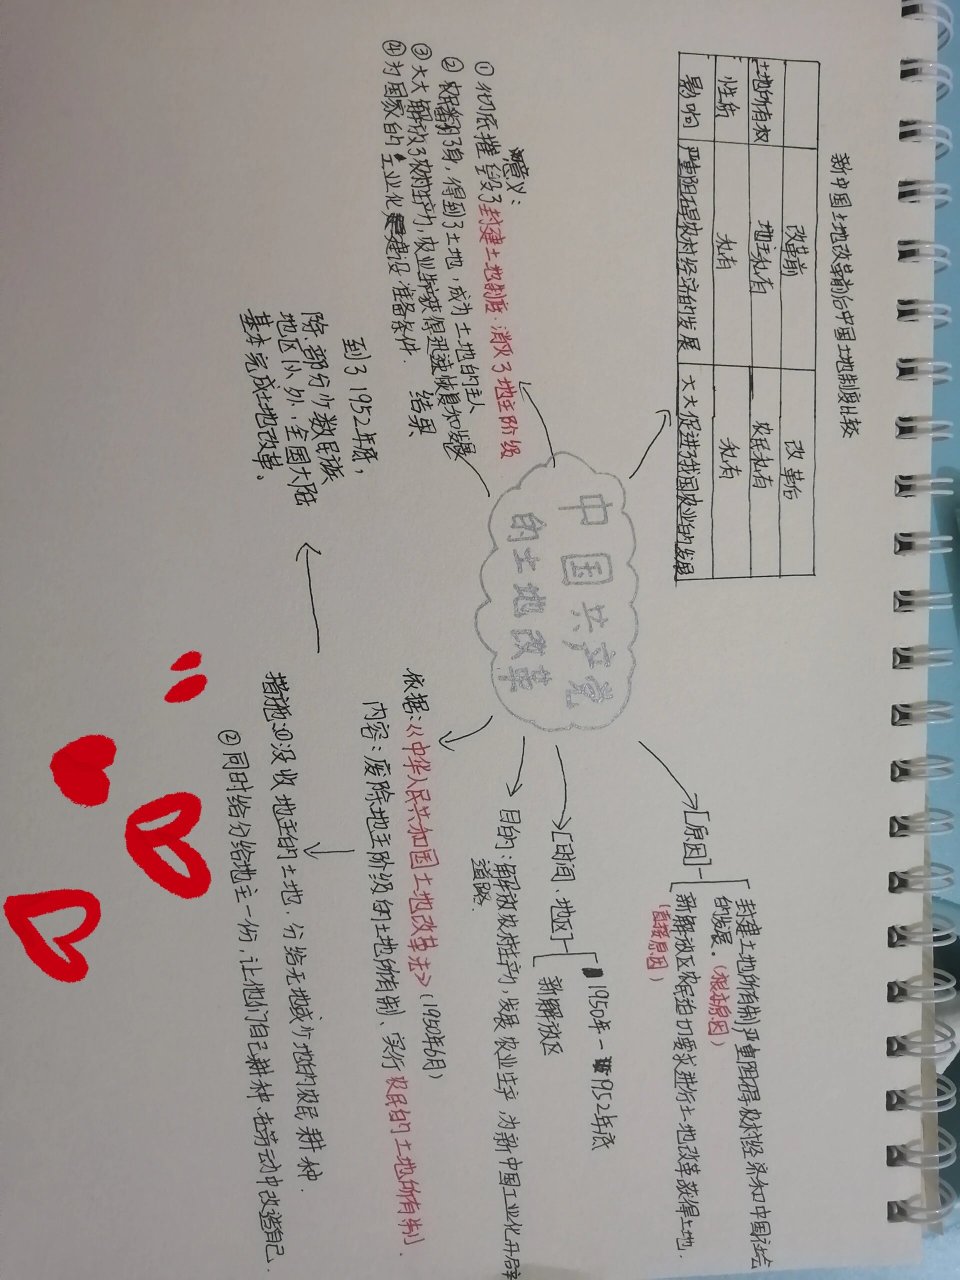 新中国土地改革前后中国土地制度比较
改革前 改革后
土地所有权 地主私有 农民私有
性质 私有 私有
影响 严重阻碍农村经济的发展 大大促进了我国农业的发展
中国共产党
的土地改革
[原因]
封建土地所有制严重阻碍农村经济和中国社会
的发展。(根本原因)
新解放区农民迫切要求进行土地改革获得土地.
(直接原因)
[时间、地区]
1950年-1952年底
新解放区
目的:解放农村生产力,发展农业生产 为新中国工业化开辟
道路.
依据:《中华人民共和国土地改革法》(1950年6月)
内容:废除地主阶级的土地所有制、实行农民的土地所有制.
措施:①没收地主的土地.分给无地或少地的农民耕种.
②同时给分给地主一份,让他们自己耕种.在劳动中改造自己.
结果
到了1952年底,
除部分少数民族
地区以外,全国大陆
基本完成土地改革。
意义:
①彻底摧毁了封建土地制度.消灭了地主阶级
②农民翻了身,得到了土地,成为土地的主人
③大大解放了农村生产力,农业生产获得迅速恢复和发展
④为国家的工业化建设准备条件.